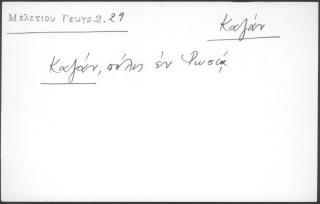 Μελετίου Γεωγρ. 2. 29
Καζάν
Καζάν, πόλις ἐν Ρωσίᾳ,